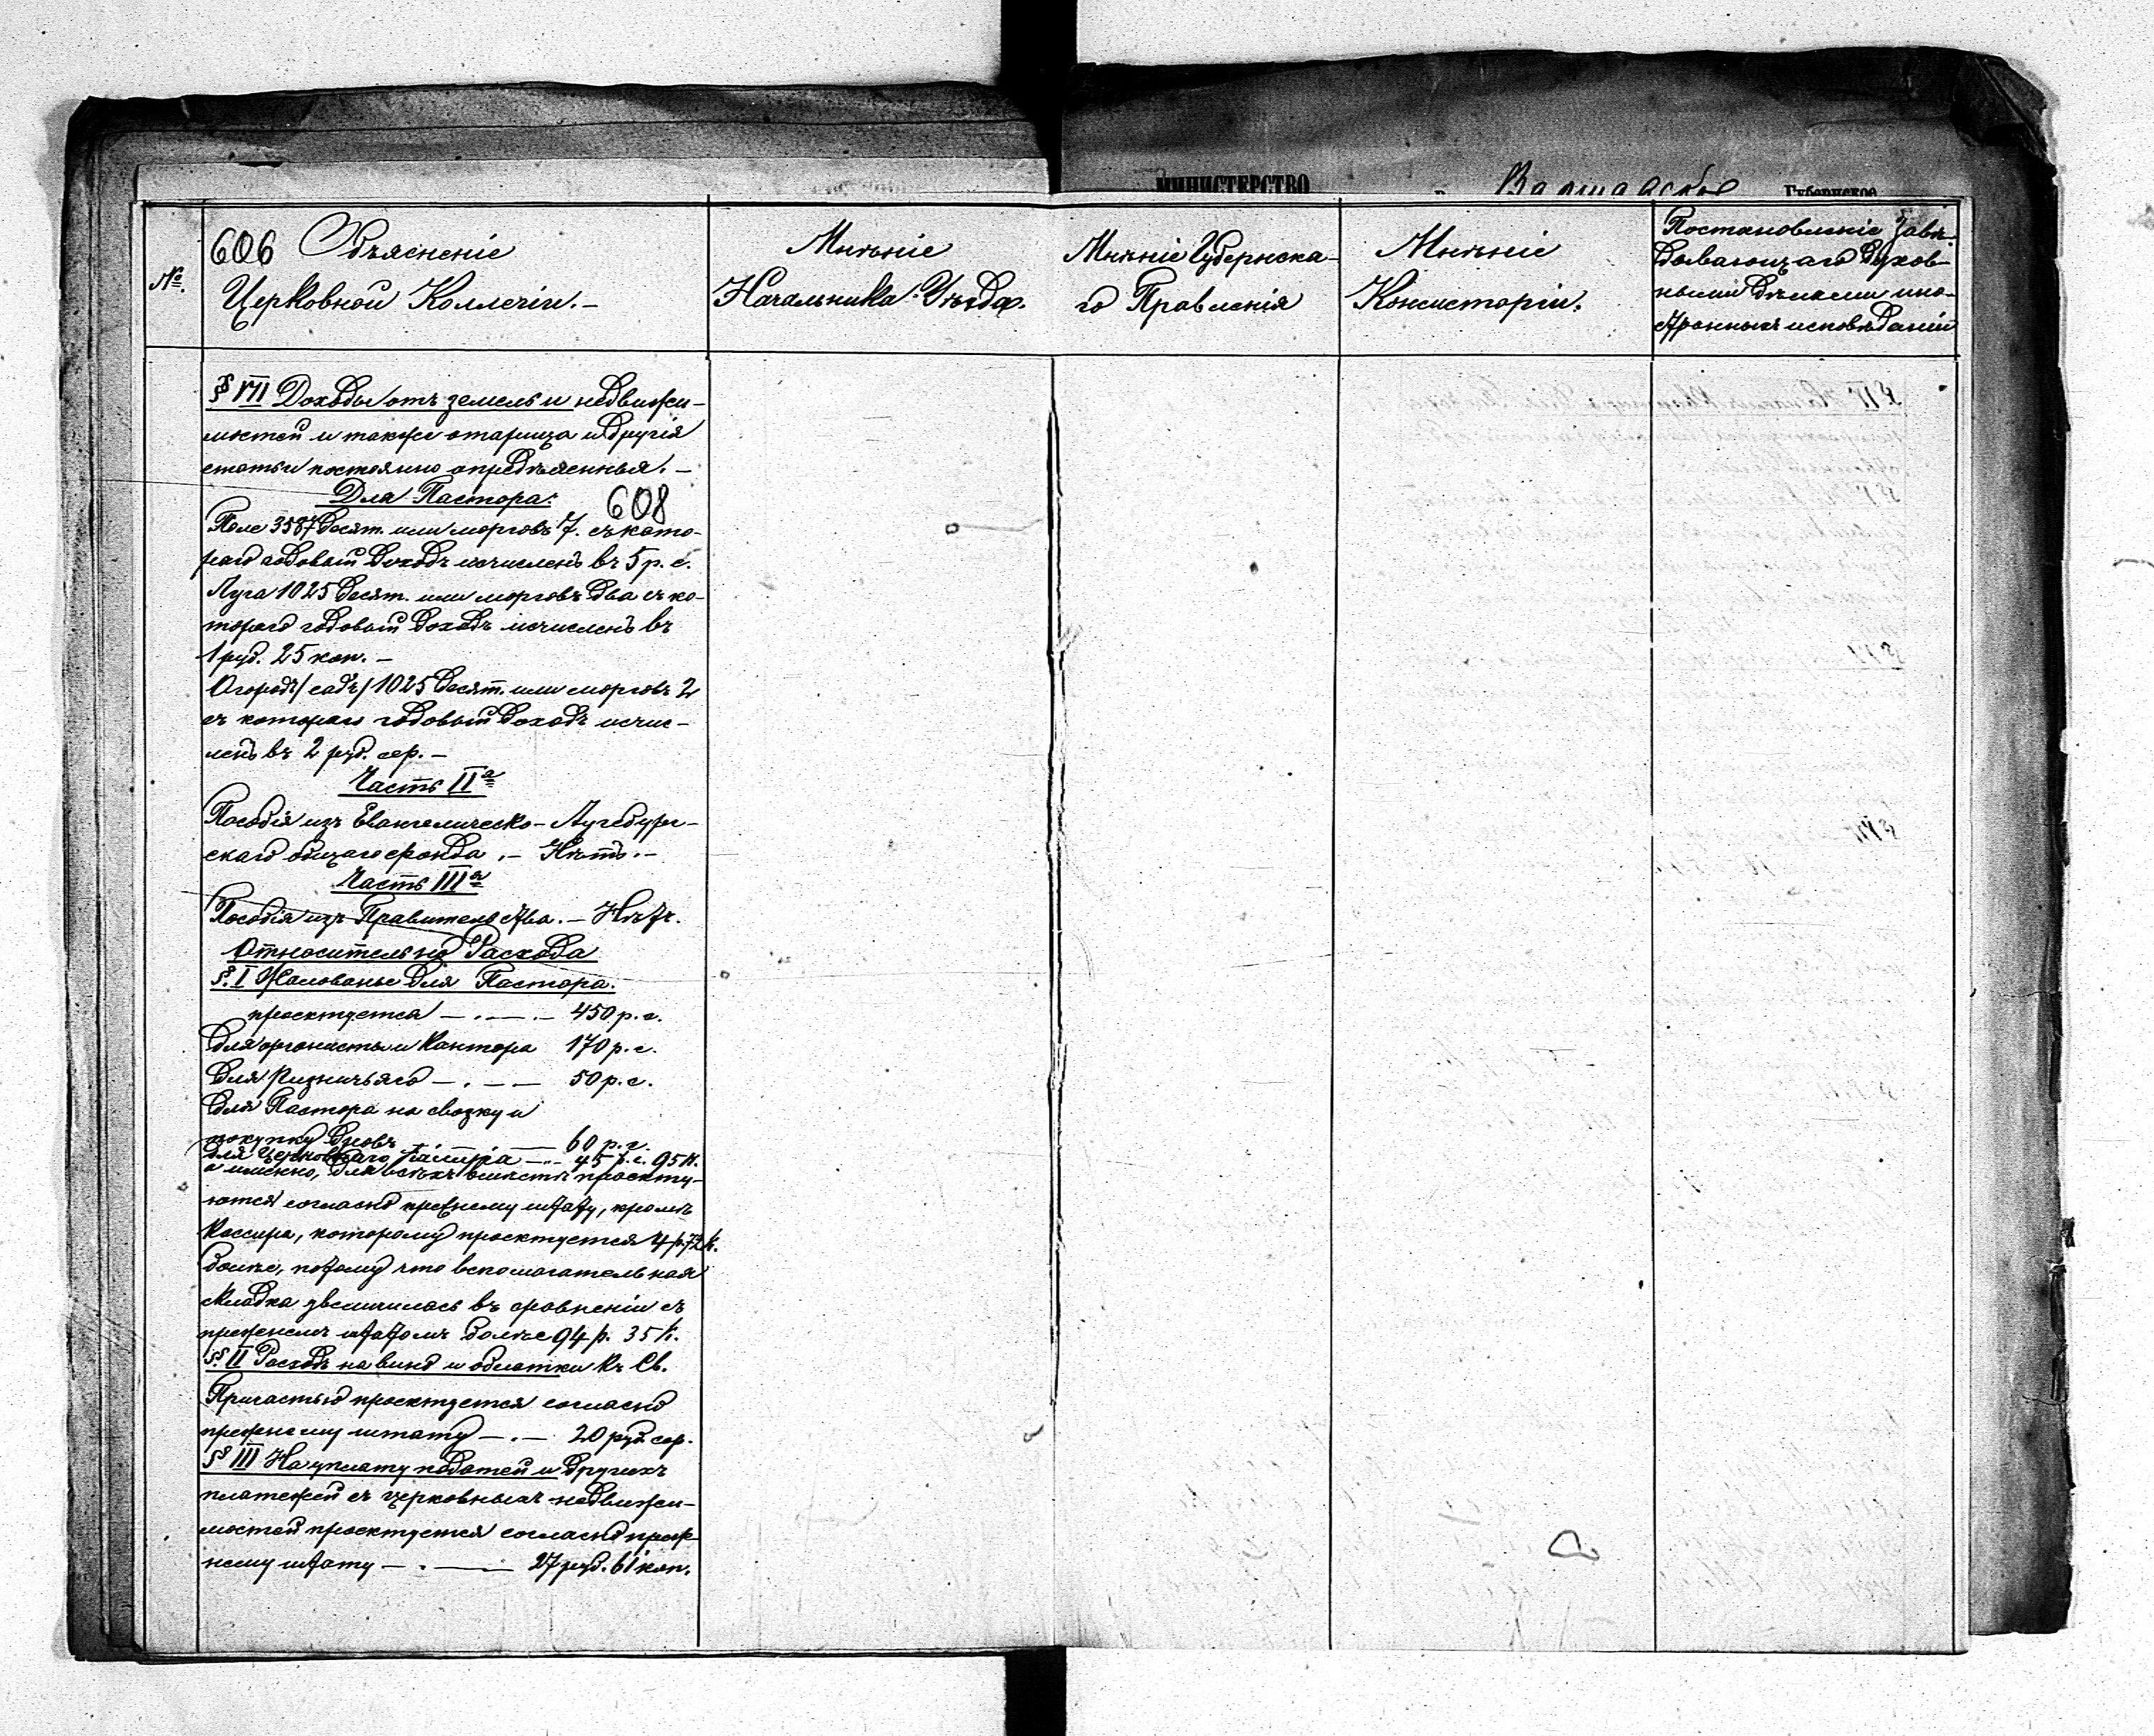 МИНИСТЕРСТВО
Варшавское Губернское
№.
606 Объясненіе
Церковной Коллегіи. –
Мнѣніе
Начальника Уѣзда.
Мнѣніе Губернска-
го Правленія
Мнѣніе
Консисторіи.
Постановленіе Завѣ-
дывающаго Духов-
ными дѣлами ино-
странныхъ исповѣданій
§ VII Доходы отъ земель и недвижи-
мостей и также
статьи постоянно опредѣленныя. –
Для Пастора:
608
Поле 3587 десят. или морговъ 7. съ кото-
раго годовый доходъ исчисленъ въ 5 р. с.
Луга 1025 десят. или морговъ два съ ко-
тораго годовый доходъ исчисленъ въ
1 руб. 25 коп. –
Огородъ /садъ/ 1025 десят. или морговъ 2
съ котораго годовый доходъ исчис-
ленъ въ 2 руб. сер. –
Часть IIа
Пособія изъ Евангелическо-Аугсбург-
скаго общаго фонда. – Нѣтъ. –
Часть IIIа
Пособія изъ Правительства. – Нѣтъ.
Относительно Расхода
§. I Жалованье для Пастора.
проектуется – . – . – 450 р. с.
для органисты и Кантора 170 р. с.
для Ризничьяго – . – – 50 р. с.
для Пастора на свозку и
покупку дровъ – 60 р. с.
для церковнаго Кассира – . – 45 р. с. 95 к.
а именно, для всѣхъ вмѣстѣ проекту-
ются согласно прежнему штату, кромѣ
Кассира, которому проектуется 4 р. 72 к.
болѣе, потому что вспомогательная
складка увеличилась въ сравненіи съ
прежнемъ штатомъ болѣе 94 р. 35 к.
§. II Расходъ на вино и облатки къ Св.
Причастью проектуется согласно
прежнему штату – . – 20 руб. сер.
§ III На уплату податей и другихъ
платежей съ церковныхъ недвижи-
мостей проектуется согласно преж-
нему штату – . – 27 руб. 61 коп.